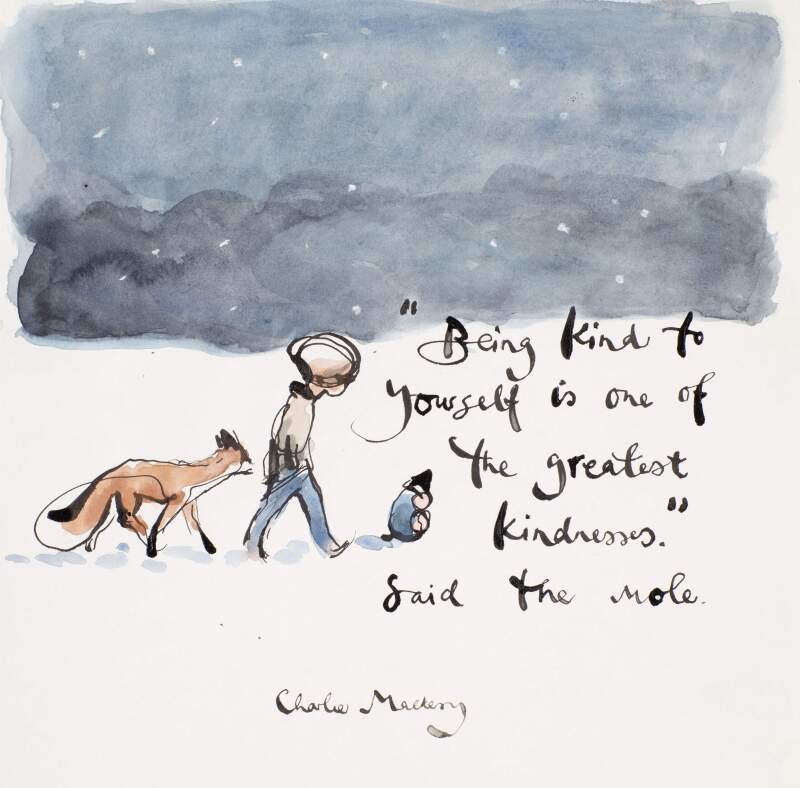 "Being kind to
yourself is one of
the greatest
kindnesses."
Said the mole.
Charlie Mackesy